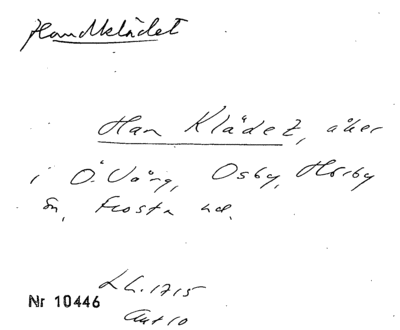 Handklädet
Han Klädet, åker
i Ö. Vång, Osby, Hörby
sn, Frosta hd.
LC. 1715
Ant 10
Nr 10446